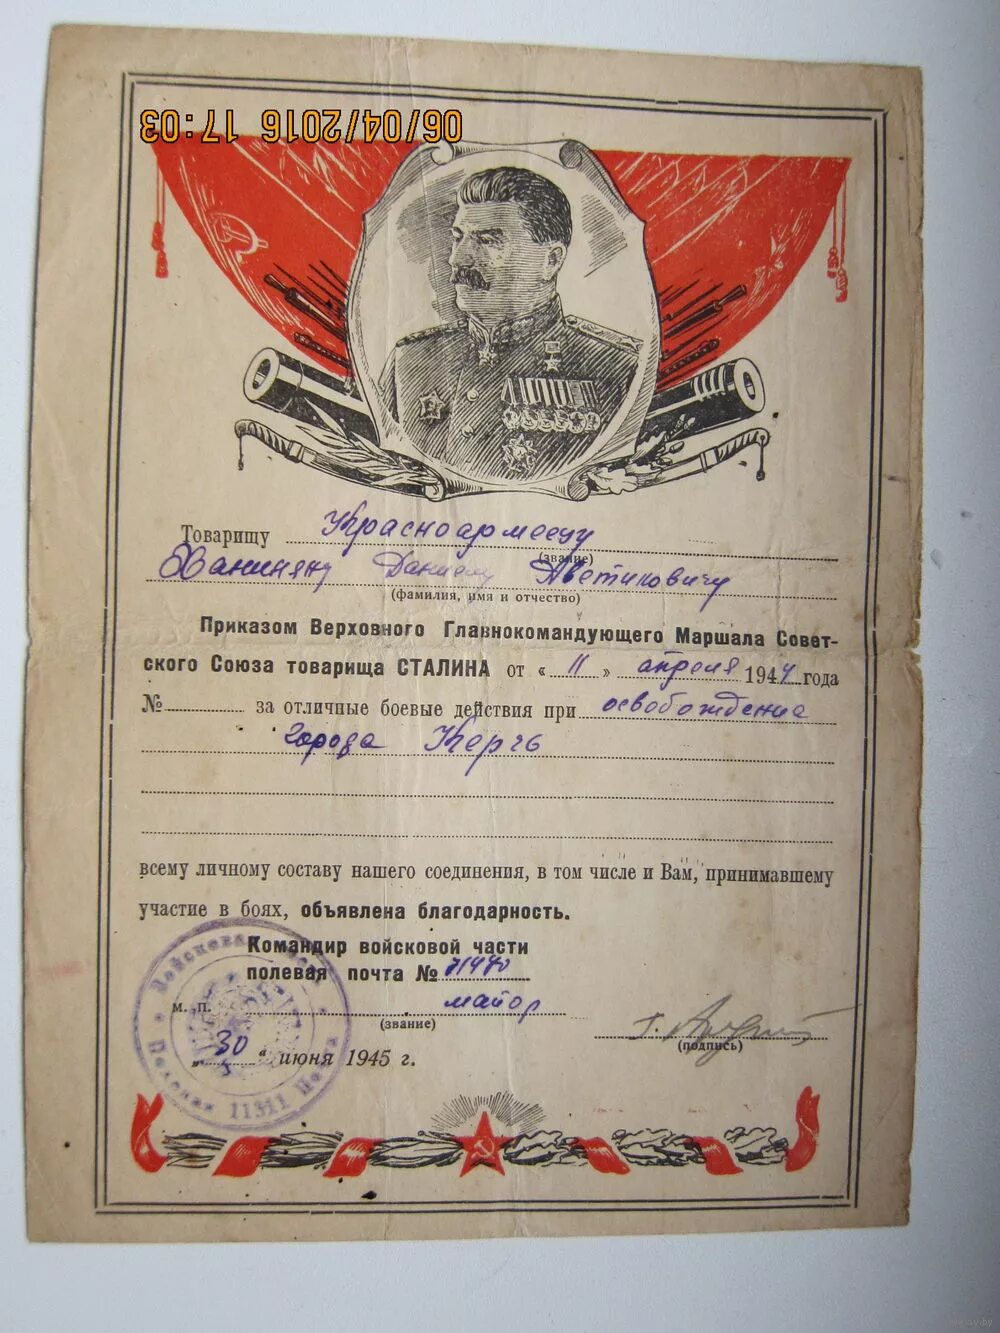 06/04/2016 17:03
Товарищу Красноармеецу
(звание)
Ханиняну Даниелу Аветиковичу
(фамилия, имя и отчество)
Приказом Верховного Главнокомандующего Маршала Совет-
ского Союза товарища СТАЛИНА от «11» апреля 1944 года
№ за отличные боевые действия при освобождение
города Керчь
всему личному составу нашего соединения, в том числе и Вам, принимавшему
участие в боях, объявлена благодарность.
Командир войсковой части
полевая почта № 71470
м. п. майор
(звание)
(подпись)
„30" июня 1945 г.
Войсковая часть
Полевая почта 11311